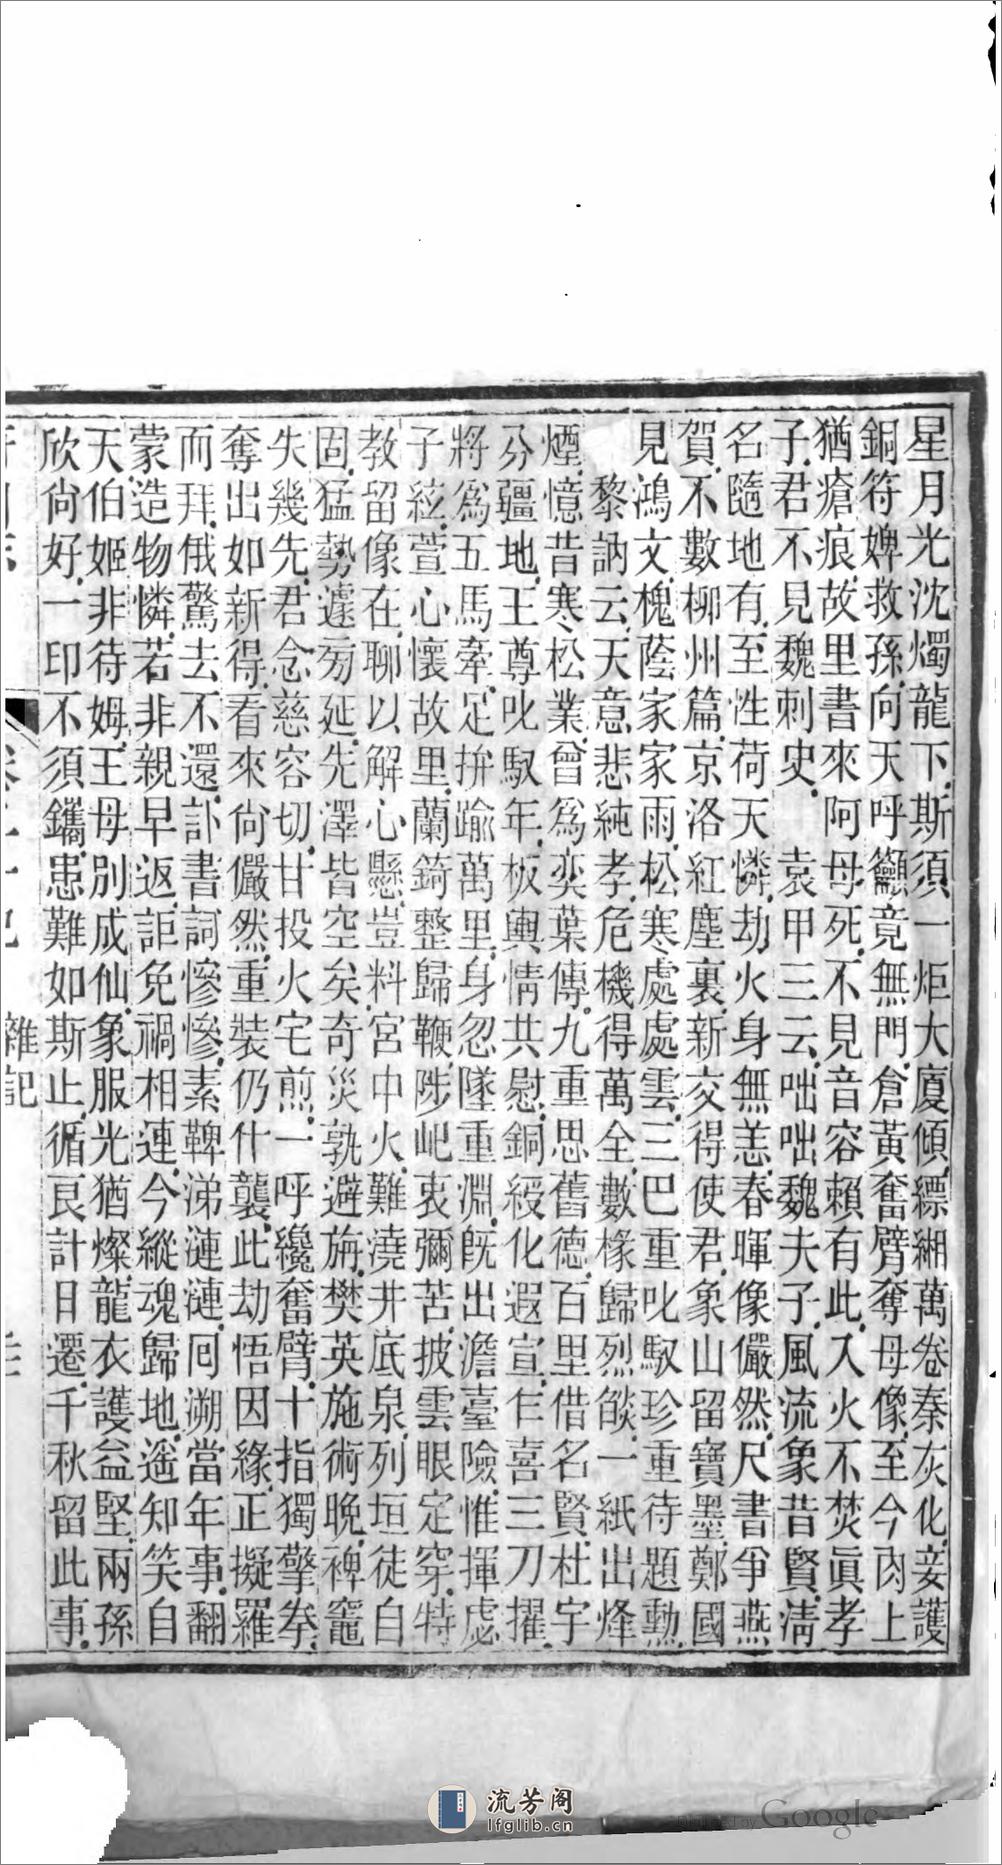 星月光沈燭龍下斯須一炬大廈傾縹緗萬卷秦灰化妾護
銅符婢救孫向天呼籲竟無門倉黃奪臂奪母像至今肉上
猶瘡痕故里書來阿母死不見音容賴有此入火不焚眞孝
子君不見魏刺史 袁甲三云咄咄魏夫子風流象昔賢淸
名隨地有至性荷天憐劫火身無恙春暉像儼然尺書爭燕
賀不數柳州篇京洛紅塵裏新交得使君象山留寶墨鄭國
見鴻文槐蔭家家雨松寒處處雲三巴重叱馭珍重待題勳
黎訥云天意悲純孝危機得萬全數椽歸烈燄一紙出烽
煙憶昔寒松業曾爲奕葉傳九重思舊德百里借名賢杜宇
分疆地王尊叱馭年板輿情共慰銅綬化遐宣乍喜三刀擢
將爲五馬牽足拚踰萬里身忽墜重淵旣出澹臺險惟揮處
子絃萱心懷故里蘭錡整歸鞭陟屺衷彌苦披雲眼定穿特
教留像在聊以解心懸豈料宮中火難澆井底泉列垣徒自
固猛勢遽旁延先澤皆空矣奇災孰避旃樊英施術晚裨竈
失幾先君念慈容切甘投火宅煎一呼纔奮臂十指獨擎拳
奪出如新得看來尙儼然重裝仍什襲此劫悟因緣正擬羅
而拜俄驚去不還訃書詞慘慘素鞸涕漣漣囘溯當年事翻
蒙造物憐若非親早返詎免禍相連今縱魂歸地遙知笑自
天伯姬非待姆王母別成仙象服光猶燦龍衣護益堅兩孫
欣尙好一印不須鐫患難如斯止循良計日遷千秋留此事
雜記
流芳阁
lfglib.cn
Google